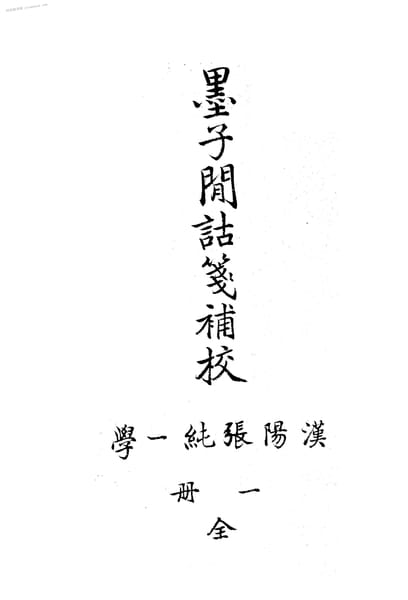 墨子閒詁箋補校
漢陽張純一學
一册
全